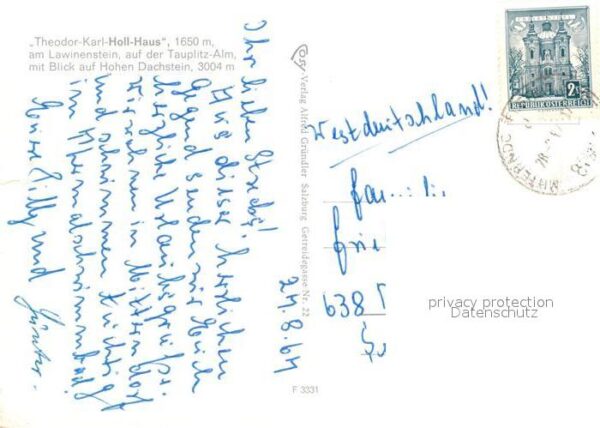 „Theodor-Karl-Holl-Haus“, 1650 m,
am Lawinenstein, auf der Tauplitz-Alm,
mit Blick auf Hohen Dachstein, 3004 m
Ihr lieben
Aus dieser herrlichen
Gegend senden wir Euch
herzliche Urlaubsgrüße.
Wir wohnen in Mitterndorf
und schwimmen tüchtig
im Thermalschwimmbad,
Eure Cilly und Günter.
24.8.64
Cosy-Verlag Alfred Gründler Salzburg Getreidegasse Nr. 22
F 3331
2
REPUBLIK ÖSTERREICH
MITTERNDO
Westdeutschland!
638
privacy protection
Datenschutz